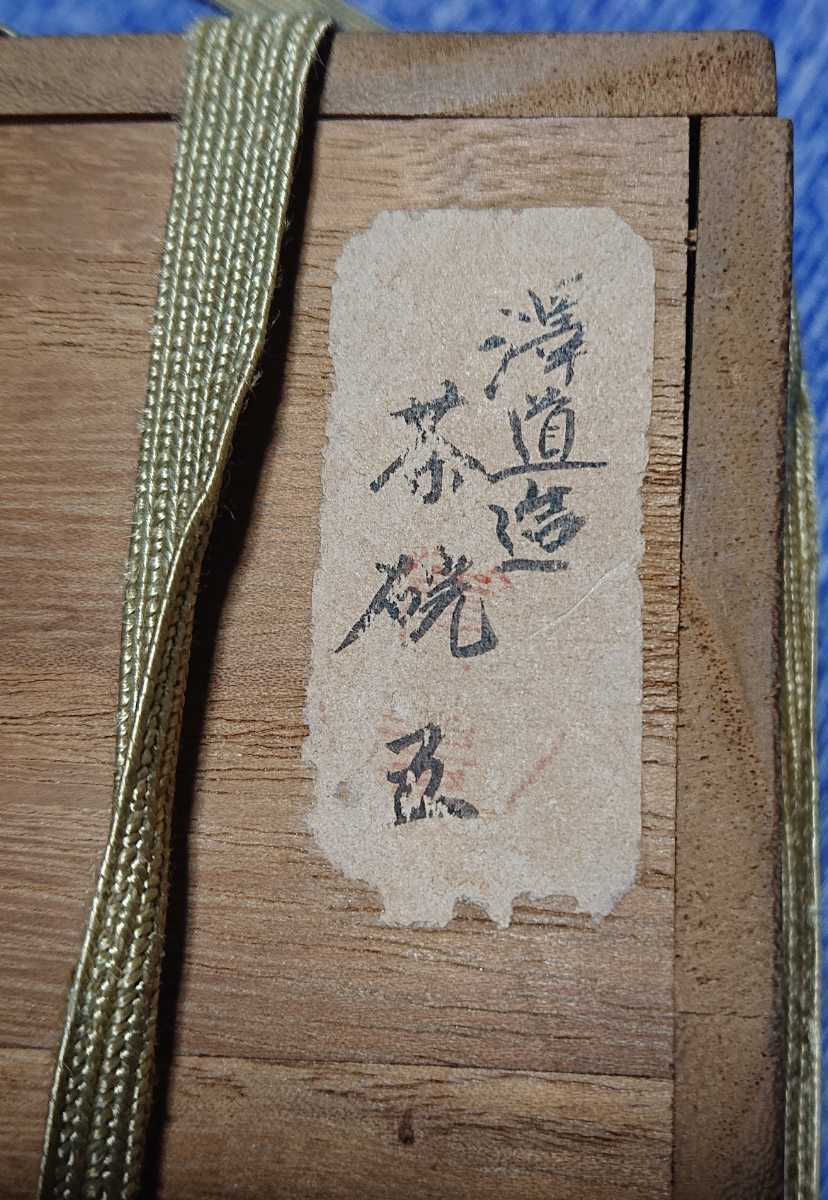 澤道造
茶碗 五